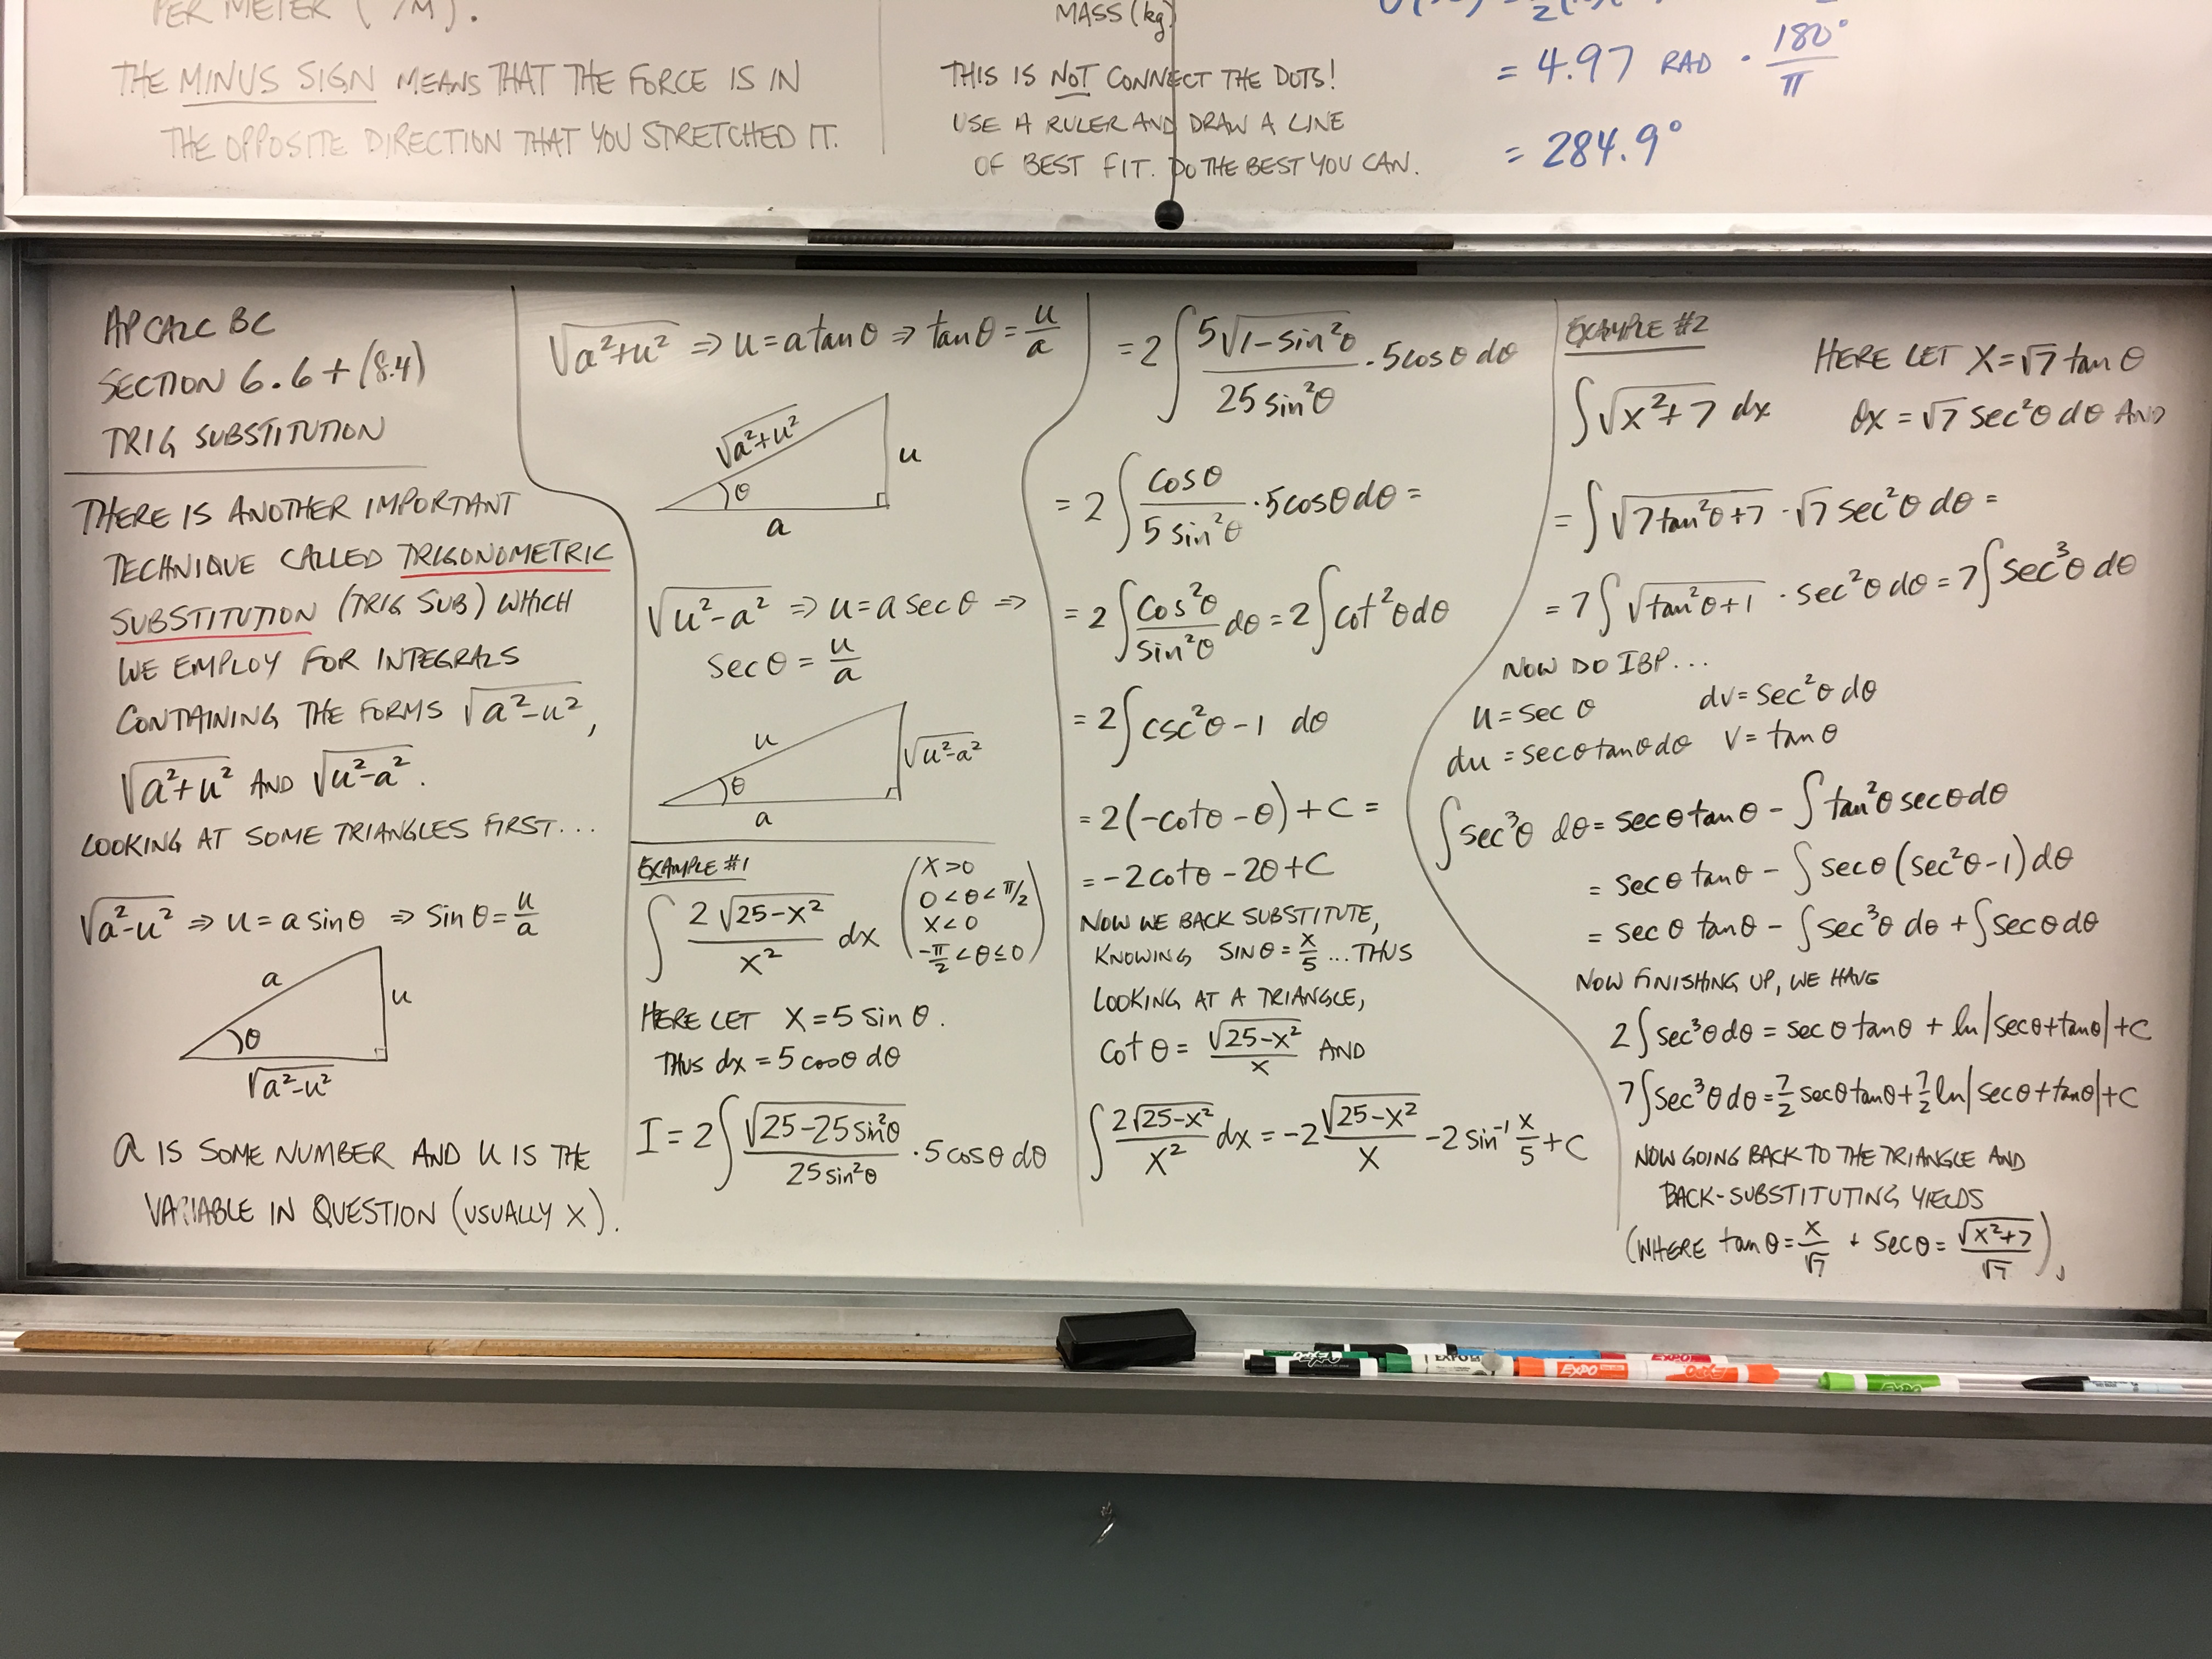 PER METER ( /M).
THE MINUS SIGN MEANS THAT THE FORCE IS IN
THE OPPOSITE DIRECTION THAT YOU STRETCHED IT.
MASS (kg)
THIS IS NOT CONNECT THE DOTS!
USE A RULER AND DRAW A LINE
OF BEST FIT. DO THE BEST YOU CAN.
= 4.97 RAD · 180°/π
= 284.9°
AP CALC BC
SECTION 6.6 + (8.4)
TRIG SUBSTITUTION
THERE IS ANOTHER IMPORTANT
TECHNIQUE CALLED TRIGONOMETRIC
SUBSTITUTION (TRIG SUB) WHICH
WE EMPLOY FOR INTEGRALS
CONTAINING THE FORMS √(a²-u²),
√(a²+u²) AND √(u²-a²).
LOOKING AT SOME TRIANGLES FIRST...
√(a²-u²) ⇒ u = a sinθ ⇒ sinθ = u/a
a
u
θ
√(a²-u²)
a IS SOME NUMBER AND u IS THE
VARIABLE IN QUESTION (USUALLY X).
√(a²+u²) ⇒ u = a tanθ ⇒ tanθ = u/a
√(a²+u²)
u
θ
a
√(u²-a²) ⇒ u = a secθ ⇒
secθ = u/a
u
√(u²-a²)
θ
a
EXAMPLE #1
∫ 2√(25-x²)/x² dx
(x>0
0<θ<π/2
x<0
-π/2<θ≤0)
HERE LET X = 5 sinθ.
THUS dx = 5 cosθ dθ
I = 2∫ √(25-25sin²θ)/(25sin²θ) · 5cosθ dθ
= 2∫ 5√(1-sin²θ)/(25sin²θ) · 5cosθ dθ
= 2∫ cosθ/(5sin²θ) · 5cosθ dθ =
= 2∫ cos²θ/sin²θ dθ = 2∫cot²θ dθ
= 2∫csc²θ-1 dθ
= 2(-cotθ-θ)+C =
= -2cotθ-2θ+C
NOW WE BACK SUBSTITUTE,
KNOWING SINθ = x/5 ... THUS
LOOKING AT A TRIANGLE,
cotθ = √(25-x²)/x AND
∫ 2√(25-x²)/x² dx = -2 √(25-x²)/x - 2 sin⁻¹ x/5 + C
EXAMPLE #2
HERE LET X = √7 tanθ
∫√(x²+7) dx
dx = √7 sec²θ dθ AND
= ∫√(7tan²θ+7) · √7 sec²θ dθ =
= 7∫√(tan²θ+1) · sec²θ dθ = 7∫sec³θ dθ
NOW DO IBP...
u = secθ dv = sec²θ dθ
du = secθtanθdθ v = tanθ
∫sec³θ dθ = secθtanθ - ∫tan²θsecθdθ
= secθtanθ - ∫secθ(sec²θ-1)dθ
= secθ tanθ - ∫sec³θ dθ + ∫secθdθ
NOW FINISHING UP, WE HAVE
2∫sec³θdθ = secθtanθ + ln|secθ+tanθ|+C
7∫sec³θdθ = 7/2 secθtanθ + 7/2 ln|secθ+tanθ|+C
NOW GOING BACK TO THE TRIANGLE AND
BACK-SUBSTITUTING YIELDS
(WHERE tanθ = x/√7 + secθ = √(x²+7)/√7),
EXPO
EXPO
EXPO
EXPO